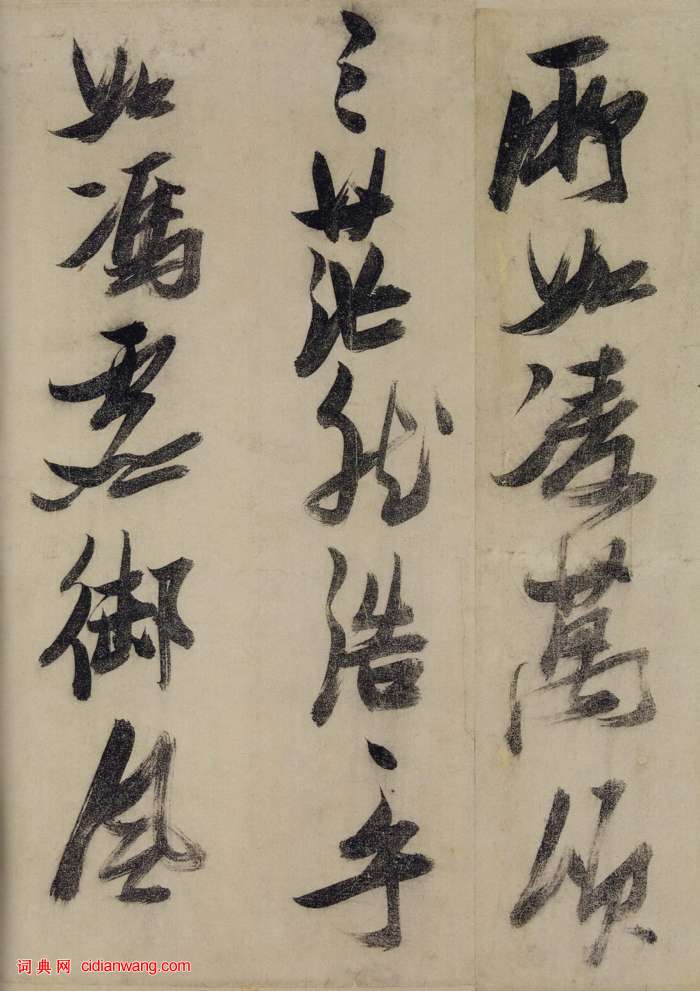 所如凌萬頃
之茫然浩々乎
如馮虛御風
词典网 cidianwang.com